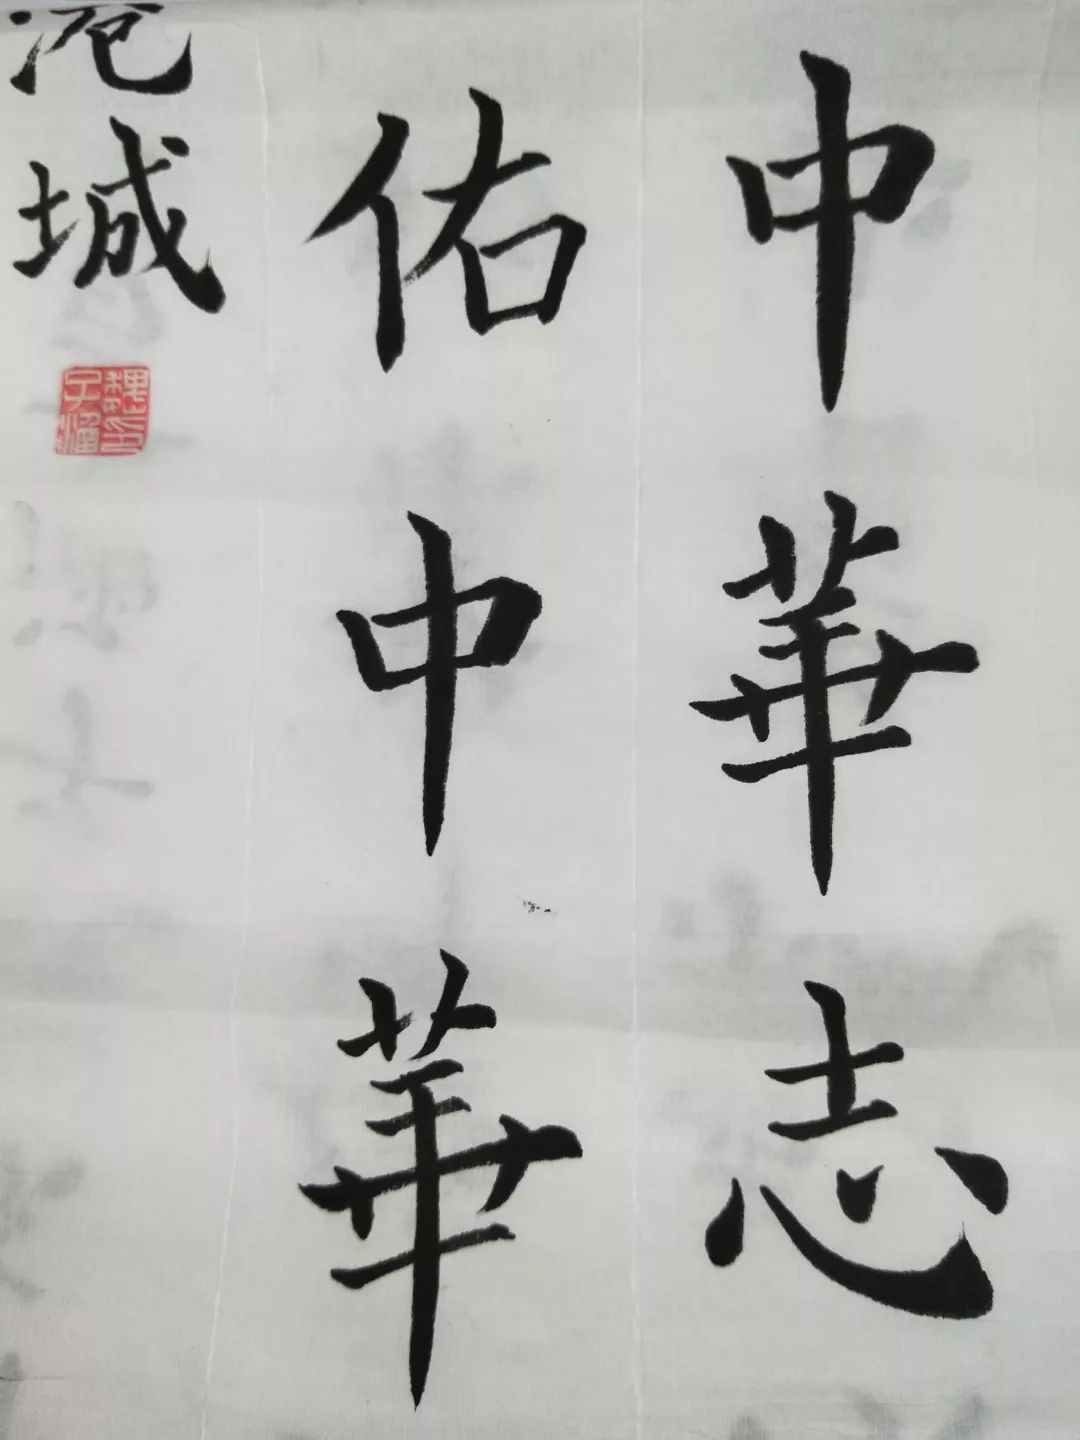 中華志
佑中華
港城